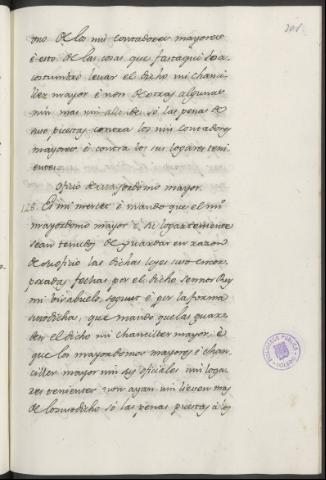 201
uno de los mis contadores mayores
é esto de las cosas que fasta aqui só a
costumbró levar el dicho mi chanci
ller mayor é non de otras algunas
nin mas nin allende só las penas de
suso puestas contra los mis contadores
mayores é contra los sus logares teni
entes.
Oficio de mayordomo mayor.
128. Es mi merced é mando que el mi
mayordomo mayor é su logarteniente
sean tenudos de guardar en razon
de su oficio las dichas leyes suso encor
poradas fechas por el dicho Sennor Rey
mi visabuelo, segunt é por la forma
susodichas, que mando que las guar
den el dicho mi chanciller mayor, é
que los mayordomos mayores é chan
ciller mayor nin sus oficiales nin loga
res tenientes non ayan nin lieven mas
de lo susodicho só las penas puestas á los
BIBLIOTECA PUBLICA
TOLEDO